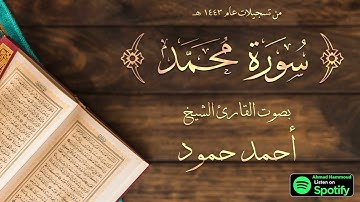 من تسجيلات عام ١٤٤٣ هـ
﴿ سُورَةُ مُحَمَّد ﴾
بصوت القارئ الشيخ
أحمد حمود
Ahmad Hammoud
Listen on
Spotify